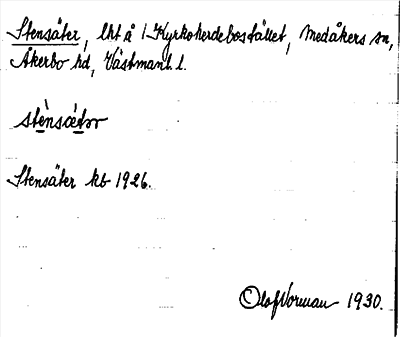 Stensäter, lht å /Kyrkoherdebostället, Medåkers sn,
Åkerbo hd, Västmanl. l.
stènsæ̀tər
Stensäter kb 1926.
Olof Vorman 1930.